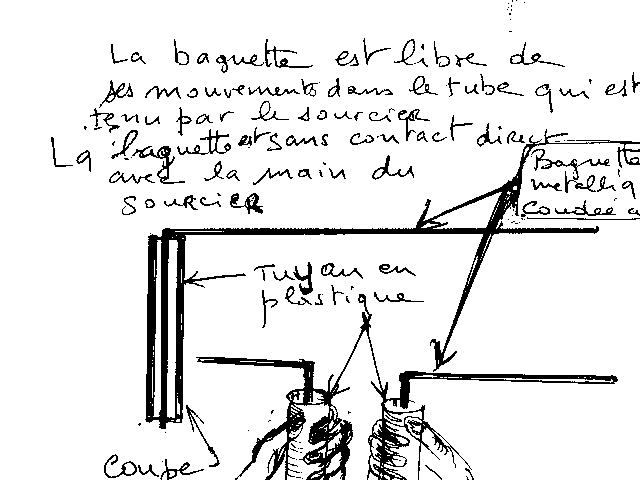 La baguette est libre de
ses mouvements dans le tube qui est
tenu par le sourcier
La baguette est sans contact direct
avec la main du
sourcier
Baguette
metalliq
coudée a
Tuyau en
plastique
Coupe